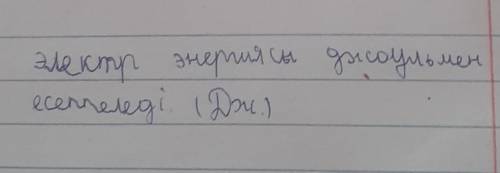 электр энергиясы джоульмен
есептеледі. (Дж.)